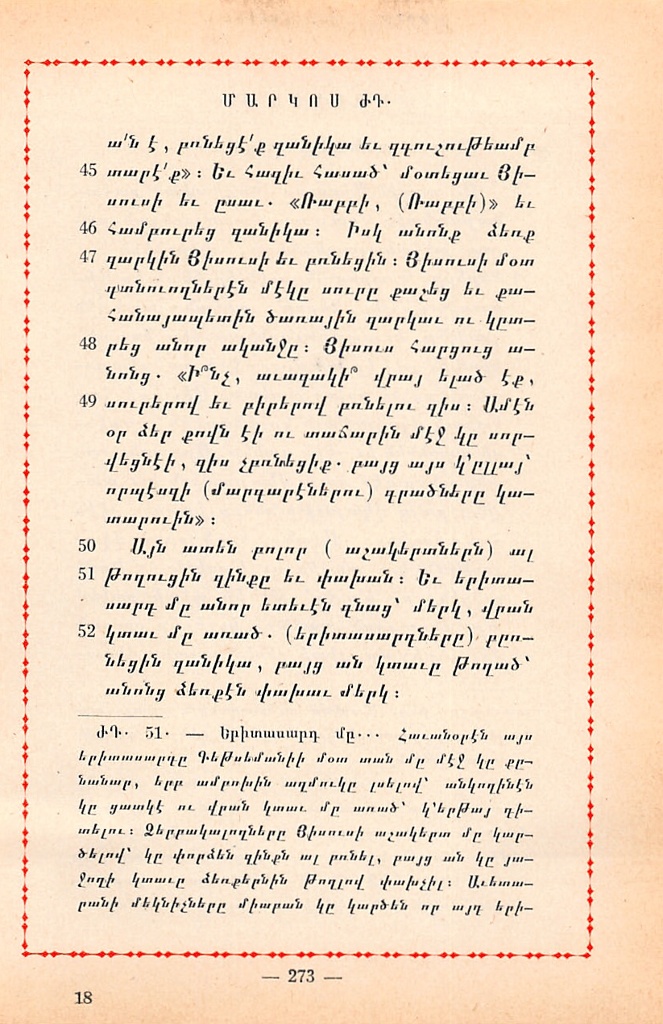 ՄԱՐԿՈՍ ԺԴ.
ա՛ն է, բռնեցէ՛ք զանիկա եւ զգուշութեամբ
45 տարէ՛ք»: Եւ հազիւ հասած՝ մօտեցաւ Յի–
սուսի եւ ըսաւ. «Ռաբբի, (Ռաբբի)» եւ
46 համբուրեց զանիկա: Իսկ անոնք ձեռք
47 զարկին Յիսուսի եւ բռնեցին: Յիսուսի մօտ
գտնուողներէն մէկը սուրը քաշեց եւ քա–
հանայապետին ծառային զարկաւ ու կըտ–
48 րեց անոր ականջը: Յիսուս հարցուց ա–
նոնց. «Ի՞նչ, աւազակի՞ վրայ ելած էք,
49 սուրերով եւ բիրերով բռնելու զիս: Ամէն
օր ձեր քովն էի ու տաճարին մէջ կը սոր–
վեցնէի, զիս չբռնեցիք. բայց այս կ՚ըլլայ՝
որպէսզի (մարգարէներու) գրածները կա–
տարուին»:
50 Այն ատեն բոլոր ( աշակերտներն) ալ
51 թողուցին զինքը եւ փախան: Եւ երիտա–
սարդ մը անոր ետեւէն գնաց՝ մերկ, վրան
52 կտաւ մը առած. (երիտասարդները) բըռ–
նեցին զանիկա, բայց ան կտաւը թողած՝
անոնց ձեռքէն փախաւ մերկ:
ԺԴ. 51. — Երիտասարդ մը... Հաւանօրէն այս
երիտասարդը Գեթսեմանիի մօտ տան մը մէջ կը քը–
նանար, երբ ամբոխին աղմուկը լսելով՝ անկողինէն
կը ցատկէ ու վրան կտաւ մը առած՝ կ՚երթայ դի–
տելու: Ձերբակալողները Յիսուսի աշակերտ մը կար–
ծելով՝ կը փորձեն զինքն ալ բռնել, բայց ան կը յա–
ջողի կտաւը ձեռքերնին թողլով փախչիլ: Աւետա–
րանի մեկնիչները միաբան կը կարծեն որ այդ երի–
— 273 —
18